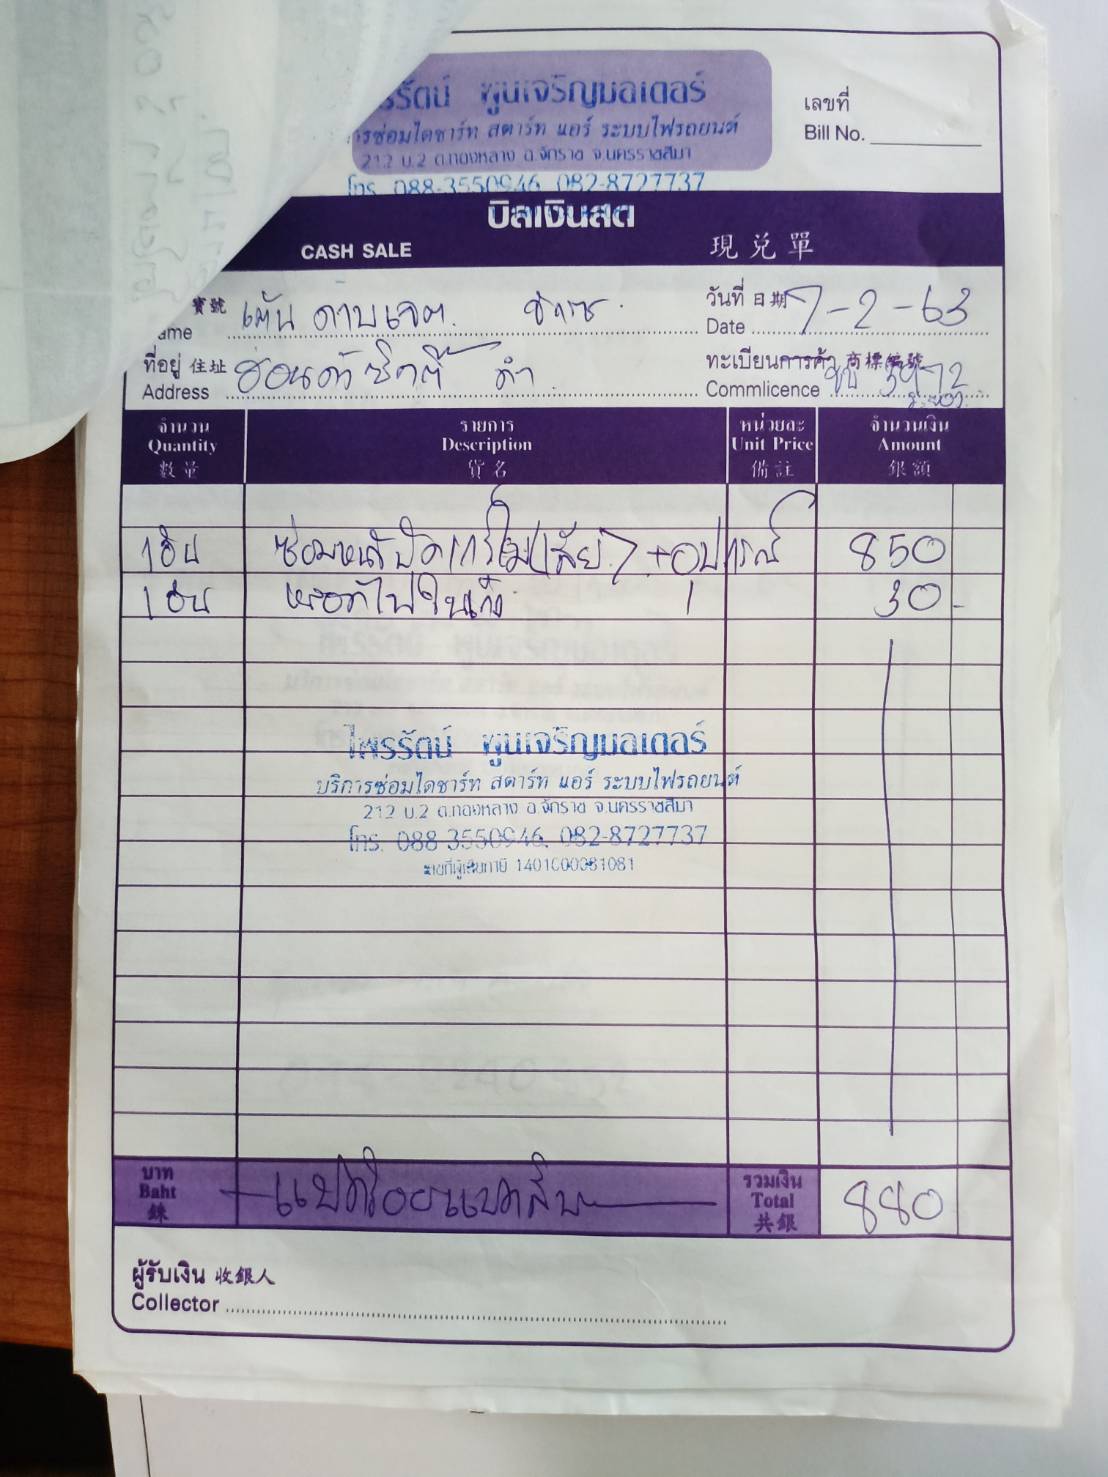 พูนเจริญมอเตอร์
การซ่อมไดชาร์ท สตาร์ท แอร์ ระบบไฟรถยนต์
212 ม.2 ต.ทองหลาง อ.จักราช จ.นครราชสีมา
โทร. 088-3550946, 082-8727737
เลขที่
Bill No.
บิลเงินสด
CASH SALE 現兌單
寶號
ame
วันที่ 日期
Date 7-2-63
ที่อยู่ 住址
Address ฮอนด้า ซิตตี้ ดำ
ทะเบียนการค้า 商標編號
Commlicence 3972 ระยอง
จำนวน รายการ หน่วยละ จำนวนเงิน
Quantity Description Unit Price Amount
數量 貨名 備註 銀額
1 อัน ซ่อม +อุปกรณ์ 850
1 อัน หลอดไฟในเก๋ง 1 30-
ไพรรัตน์ พูนเจริญมอเตอร์
บริการซ่อมไดชาร์ท สตาร์ท แอร์ ระบบไฟรถยนต์
212 ม.2 ต.ทองหลาง อ.จักราช จ.นครราชสีมา
โทร. 088 3550946, 082-8727737
เลขที่ผู้เสียภาษี
บาท
Baht
銖
แปดร้อยแปดสิบ
รวมเงิน
Total
共銀
880
ผู้รับเงิน 收銀人
Collector